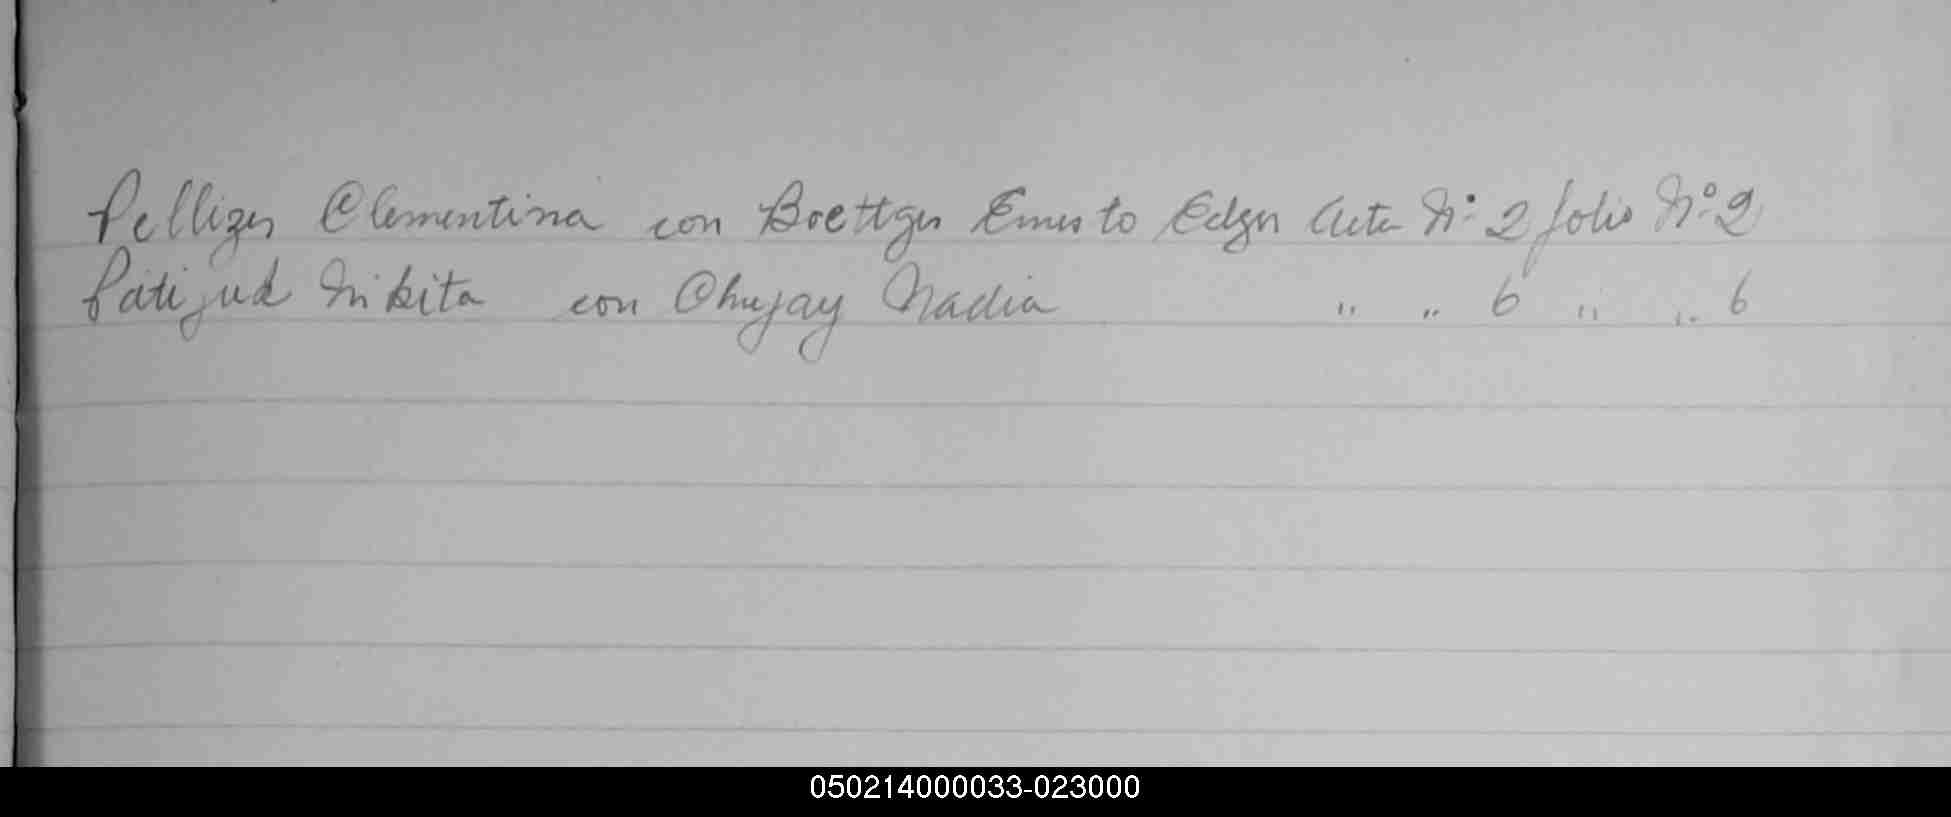 Pellizer Clementina con Boettger Ernesto Edgar Acta Nº 2 folio Nº 2
Patijuk Nikita con Chujay Nadia " " 6 " " 6
050214000033-023000